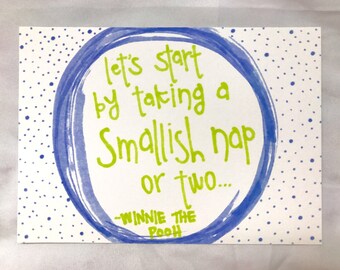 let's start
by taking a
Smallish nap
or two...
-WINNIE THE
POOH